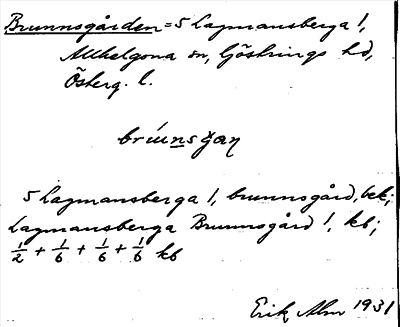 Brunnsgården = 5 Lagmansberga 1,
Allhelgona sn, Göstrings hd,
Österg. l.
brunsgaṇ
5 Lagmansberga 1, brunnsgård, bek;
Lagmansberga Brunnsgård 1, kb;
1/2 + 1/6 + 1/6 + 1/6 kb
Erik Alm 1931